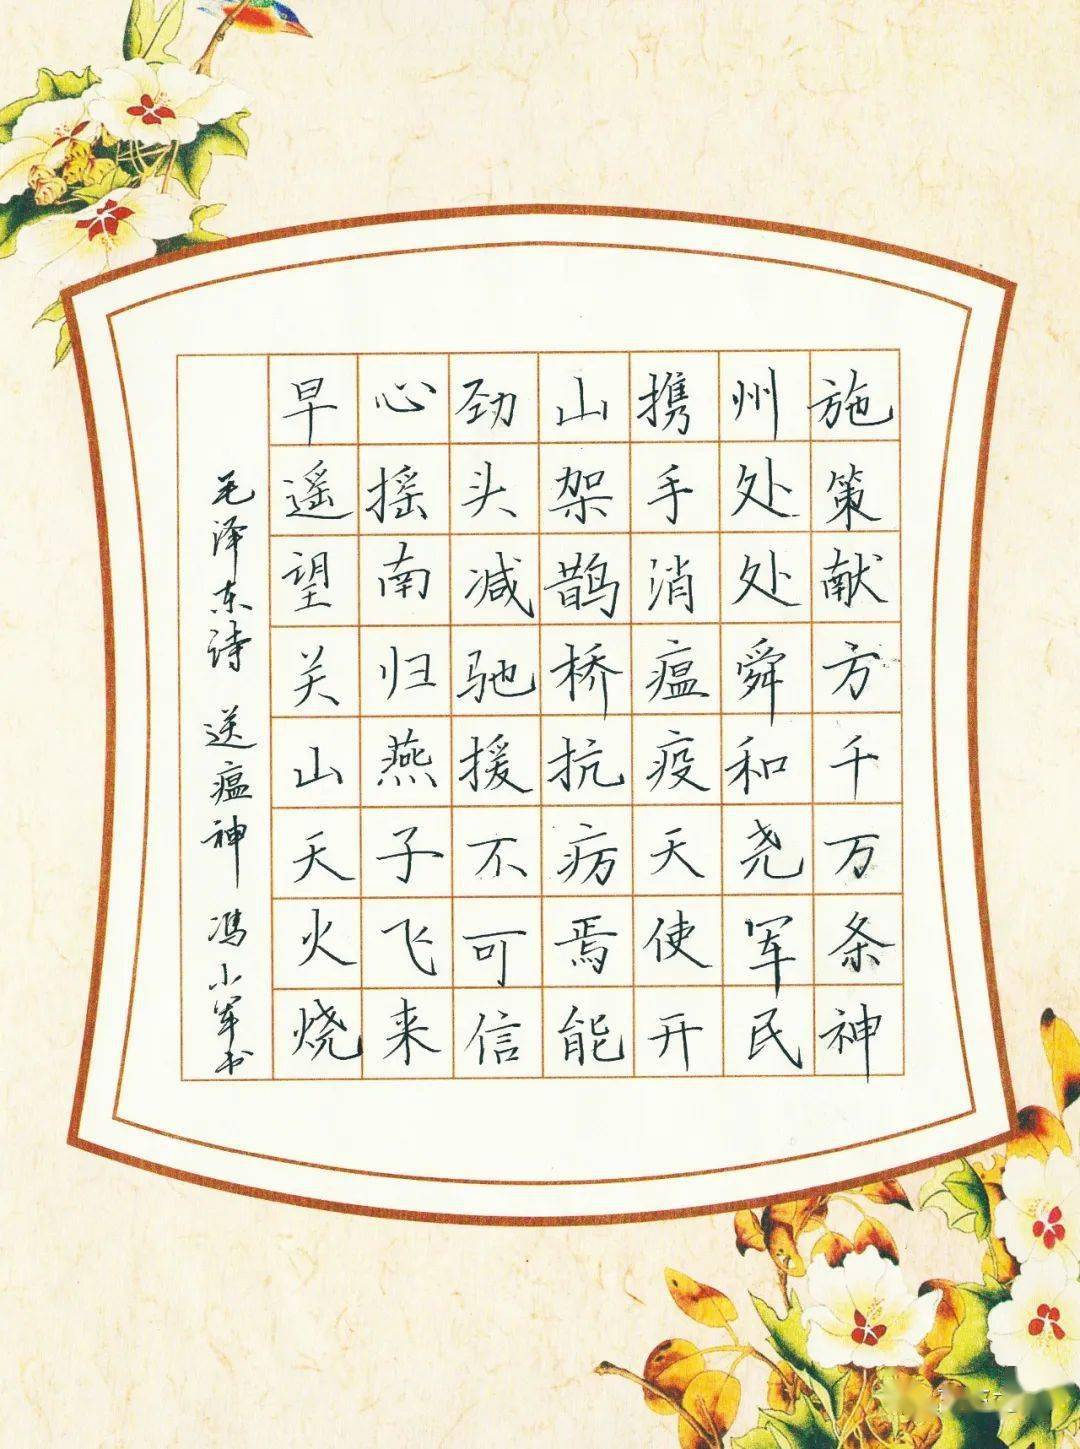 施策献方千万条神
州处处舜和尧军民
携手消瘟疫天使开
山架鹊桥抗疠焉能
劲头减驰援不可信
心摇南归燕子飞来
早遥望关山天火烧
毛泽东诗 送瘟神 馮小军书